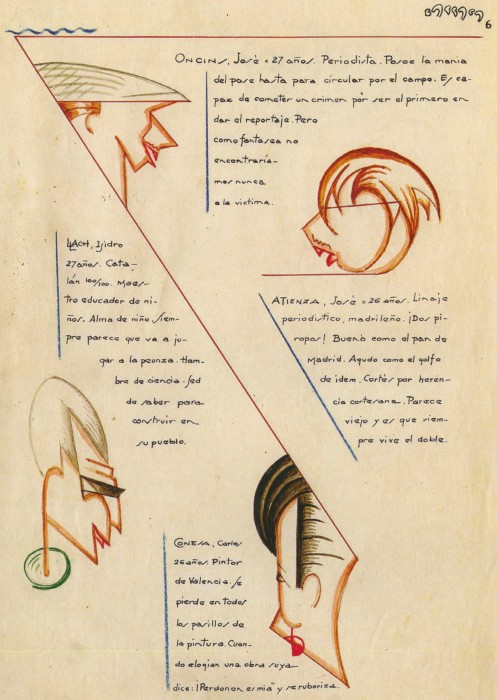 6
ONCINS, José = 27 años. Periodista. Posee la manía
del pase hasta para circular por el campo. Es ca-
paz de cometer un crimen por ser el primero en
dar el reportaje. Pero
como fantasea no
encontraría-
mos nunca
a la víctima.
LLACH, Isidro
27 años. Cata-
lán 100/100. Maes-
tro educador de ni-
ños. Alma de niño. Siem-
pre parece que va a ju-
gar a la peonza. Ham-
bre de ciencia. Sed
de saber para
construir en
su pueblo.
ATIENZA, José = 26 años. Linaje
periodístico, madrileño. ¡Dos pi-
ropos! Bueno como el pan de
Madrid. Agudo como el golfo
de idem. Cortés por heren-
cia cortesana. Parece
viejo y es que siem-
pre vive el doble.
CONESA, Carlos
26 años. Pintor
de Valencia. Se
pierde en todos
los pasillos de
la pintura. Cuan-
do elogian una obra suya
dice: ¡Perdonen es mía" y se ruboriza.